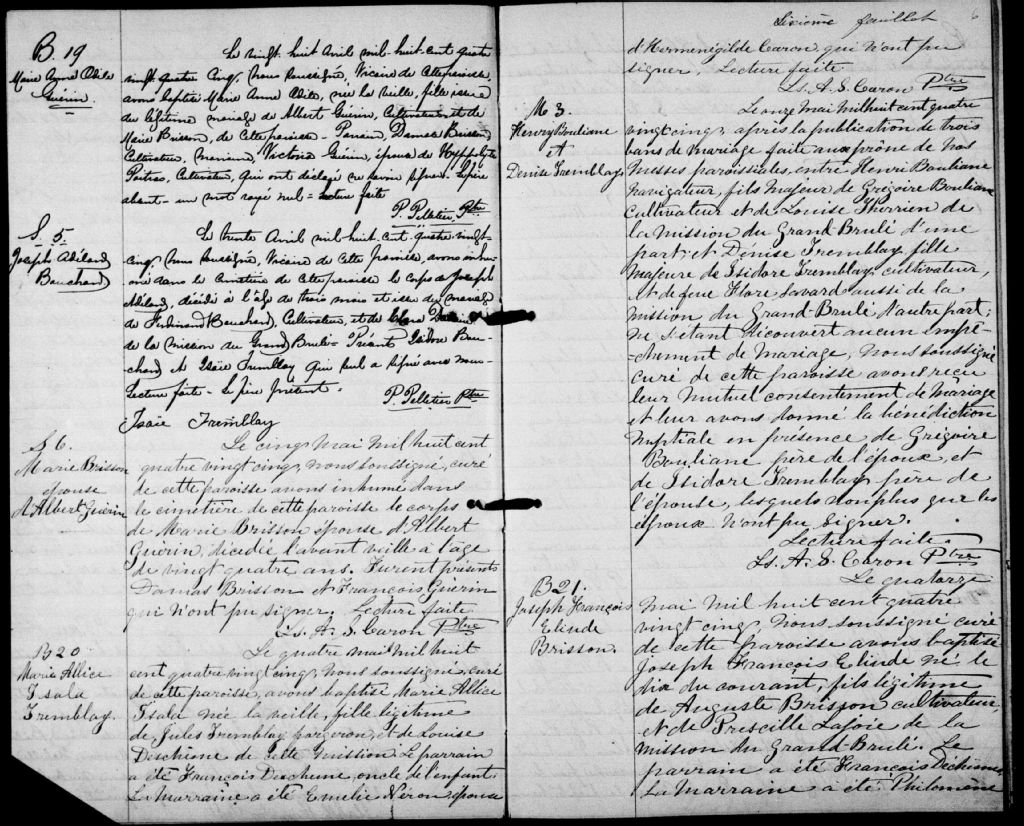 B. 19
Marie Anne Adila
Guérin.
Le vingt huit Avril mil-huit-cent quatre
vingt quatre cinq, nous soussigné, Vicaire de cette paroisse,
avons baptisé Marie Anne Adila, née la veille, fille issue
du légitime mariage de Albert Guérin, Cultivateur et de
Marie Brisson, de cette paroisse - Parrain Damas Brisson
Cultivateur, marraine, Victoria Guérin, épouse de Hyppolyte
Poitras, Cultivateur, qui ont déclaré ne savoir signer. Le père
absent - un mot rayé nul = Lecture faite
P. Pelletier, Ptre
S. 5
Joseph Adélard
Bouchard
Le trente Avril mil-huit-cent-quatre-vingt-
cinq, nous soussigné, Vicaire de cette paroisse, avons inhu-
mé dans le cimetière de cette paroisse le corps de Joseph
Adélard, décédé à l'âge de trois mois et issu du mariage
de Ferdinand Bouchard, Cultivateur, et de
de la mission du Grand Brulé = Présents Isidore Bou-
chard et Isaïe Tremblay qui seul a signé avec nous -
Lecture faite - Le père présent -
P. Pelletier Ptre
Isaïe Tremblay
S 6.
Marie Brisson
épouse
d'Albert Guérin
Le cinq mai mil huit cent
quatre vingt cinq, nous soussigné, curé
de cette paroisse avons inhumé dans
le cimetière de cette paroisse le corps
de Marie Brisson épouse d'Albert
Guérin, décédée l'avant veille à l'âge
de vingt quatre ans. Furent présents
Damas Brisson et François Guérin
qui n'ont pu signer. Lecture faite
Ls. A. S. Caron Ptre
B 20
Marie Allice
Isala
Tremblay.
Le quatre mai mil huit
cent quatre vingt cinq, nous soussigné, curé
de cette paroisse, avons baptisé Marie Allice
Isala née la veille, fille légitime
de Jules Tremblay forgeron, et de Louise
Deschêne de cette mission Le parrain
a été François Deschene, oncle de l'enfant.
La Marraine a été Emelie Néron, épouse
Sixième feuillet
6
d'Hermenégilde Caron, qui n'ont pu
signer, Lecture faite.
Ls. A. S. Caron Ptre
M 3.
Henry Bouliane
et
Denise Tremblay
Le onze Mai mil huit cent quatre
vingt cinq, après la publication de trois
bans de mariage faite aux prône de nos
Messes paroissiales, entre Henri Bouliane
navigateur, fils majeur de Grégoire Bouliane
cultivateur et de Louise Therrien de
la mission du Grand Brulé d'une
part; et Dénise Tremblay, fille
majeure de Isidore Tremblay, cultivateur,
et de feue Flore Savard aussi de la
mission du Grand-Brulé d'autre part;
ne s'étant découvert aucun empê-
chement de mariage, nous soussigné
curé de cette paroisse avons reçu
leur mutuel consentement de mariage
et leur avons donné la bénédiction
nuptiale en présence de Grégoire
Bouliane père de l'époux, et
de Isidore Tremblay père de
l'épouse, lesquels non plus que les
époux n'ont pu signer.
Lecture faite.
Ls. A. S. Caron Ptre
B 21.
Joseph François
Elinde
Brisson.
Le quatorze
mai mil huit cent quatre
vingt cinq, nous soussigné curé
de cette paroisse avons baptisé
Joseph François Elinde né le
dix du courant, fils légitime
de Auguste Brisson cultivateur,
et de Priscille Lajoie de la
mission du Grand-Brulé. Le
parrain a été François Dechêne,
La Marraine a été Philomène